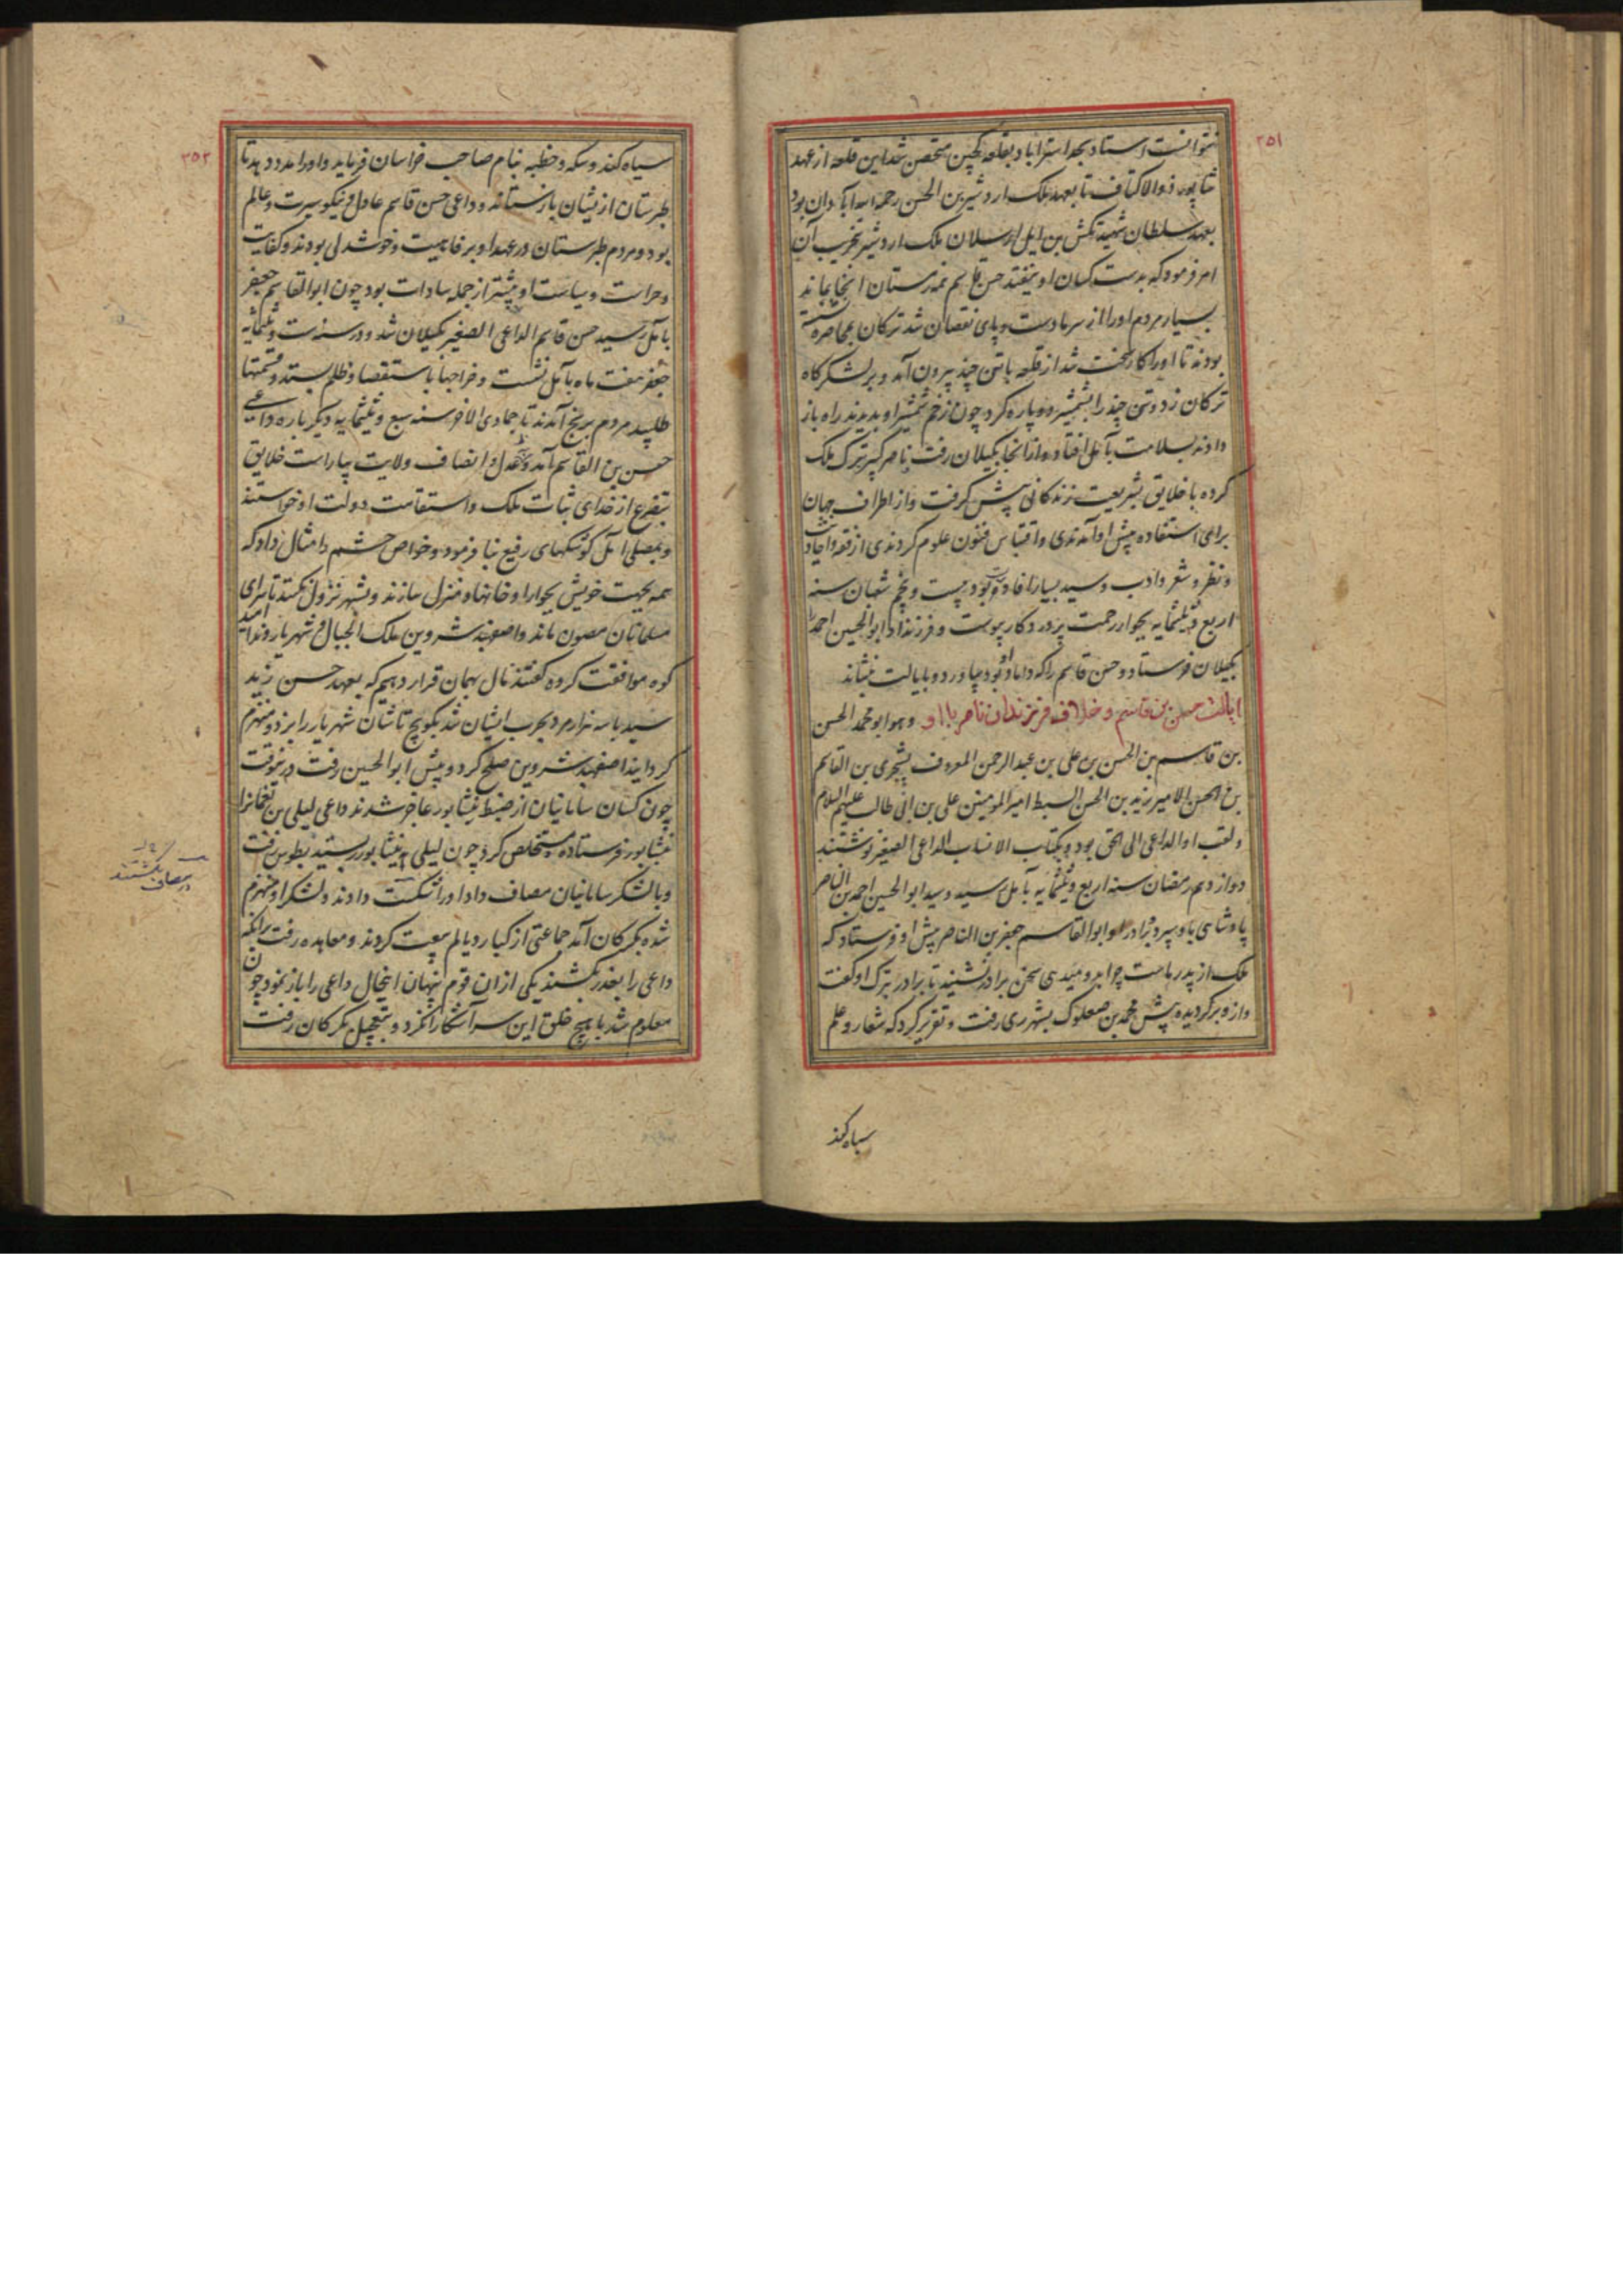 ٢٥١
نتوانست استاد بحد استراباد بقلعه کجین متحصن شد این قلعه از عهد
شاپور ذوالاکتاف تا بعهد ملک اردشیر بن الحسن رحمه الله آبادان بود
بعهد سلطان شهید تکش بن ایل ارسلان ملک اردشیر تخریب آن
امر فرمود که بدست کسان او نیفتد حسن قاسم همه زمستان آنجا بماند
بسیار مردم او را از سرما دست و پای نقصان شد ترکان بمحاصره نشسته
بودند تا او را کار سخت شد از قلعه باتنی چند بیرون آمد و بر لشکرگاه
ترکان زد و تنی چند را بشمشیر دو پاره کرد چون زخم شمشیر او بدیدند راه باز
دادند بسلامت بآمل افتاد و از انجا بکیلان رفت ناصر کبیر ترک ملک
کرده با خلایق بشریعت زندکانی پیش کرفت و از اطراف جهان
برای استفاده پیش او آمدندی و اقتباس فنون علوم کردندی از فقه و احادیث
و نظر و شعر و ادب و سید بسیار افادت بود بیست و پنجم شعبان سنه
اربع و ثلثمایه بجوار رحمت پروردکار پیوست و فرزند او ابو الحسین احمد را
بکیلان فرستاد و حسن قاسم را که داماد او بود بیاورد و بایالت بنشاند
ایالت حسن بن قاسم و خلاف فرزندان ناصر با او وهو ابو محمد الحسن
بن قاسم بن الحسن بن علی بن عبد الرحمن المعروف بشجری بن القاسم
بن الحسن الامیر زید بن الحسن السبط امیر المومنین علی بن ابی طالب علیهم السلام
و لقب او الداعی الی الحق بود و بکتاب الانساب الداعی الصغیر نوشتند
دوازدهم رمضان سنه اربع و ثلثمایه بآمل رسید و سید ابو الحسین احمد بن الناصر
پادشاهی باو سپرد برادر او ابو القاسم جعفر بن الناصر پیش او فرستاد که
ملک از پدر ماست چرا بدو میدهی سخن برادر نشنید تا برادر ترک او کفت
و ازو برکردیده پیش محمد بن صعلوک بشهر ری رفت و تقریر کرد که شعار و علم
سیاه کند
٢٥٢
سیاه کند و سکه و خطبه بنام صاحب خراسان فرماید و او را مدد دهد تا
طبرستان از یشان باز ستاند و داعی حسن قاسم عادل و نیکو سیرت و عالم
بود و مردم طبرستان در عهد او بر فاهیت و خوشدلی بودند و کفایت
و حراست و سیاست او بیشتر از جمله سادات بود چون ابو القاسم جعفر
بآمل رسید حسن قاسم الداعی الصغیر بکیلان شد و در سنه ست و ثلثمایه
جعفر هفت ماه بآمل نشست و خراجها باستقصا و ظلم بستد و قسمتها
طلبید مردم برنج آمدند تا جمادی الاخر سنه سبع و ثلثمایه دیکر باره داعی
حسن بن القاسم آمد و بعدل و انصاف ولایت بیاراست خلایق
بتضرع از خدای ثبات ملک و استقامت دولت او خواستند
و بمصلی آمل کوشکهای رفیع بنا فرمود و خواص حشم را مثال داد که
همه بجهت خویش بجوار او خانها و منزل سازند و بشهر نزول نکنند تا سرای
مسلمانان مصون ماند و اصفهبد شروین ملک الجبال و شهریار وندامید
کوه موافقت کرده کفتند مال بهمان قرار دهیم که بعهد حسن زید
سید با سه هزار مرد بحرب ایشان شد بکوچ تاشان شهریار را بزد و منهزم
کردانید اصفهبد شروین صلح کرد و پیش ابو الحسین رفت در نوقت
چون کسان سامانیان از ضبط نیشابور عاجز شدند داعی لیلی بن نعمانرا
نیشابور فرستاده مستخلص کرد چون لیلی از نیشابور رسید بطوس رفت
و با لشکر سامانیان مصاف داد او را شکست دادند و لشکر او منهزم
شده بکرکان آمد جماعتی از کبار دیالم بیعت کردند و معاهده رفت برانکه
داعی را بغدر بکشند یکی از ان قوم پنهان اینحال داعی را باز نمود چون
معلوم شد با هیچ خلق این سر آشکارا نکرد و بتعجیل بکرکان رفت
در مصاف بکشتند